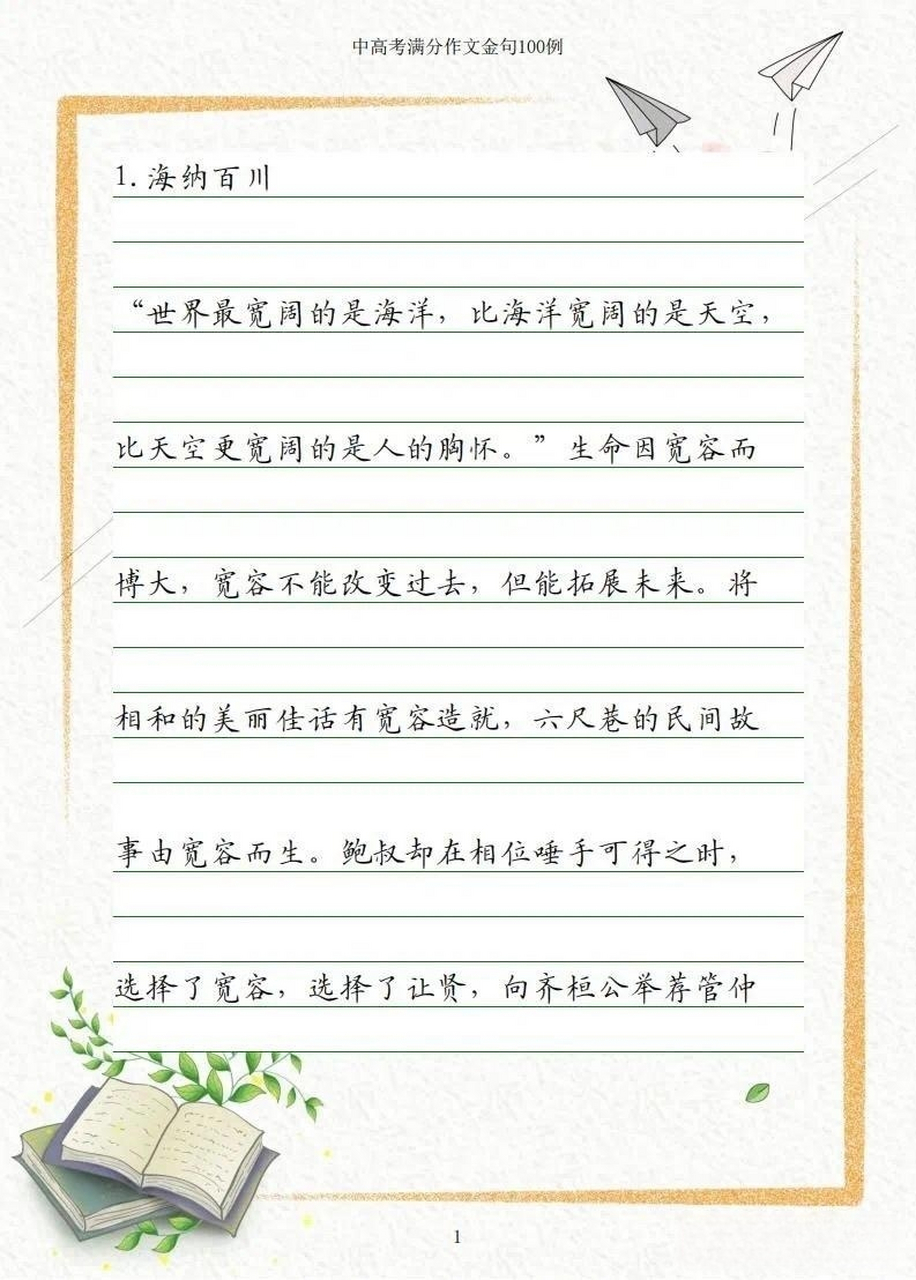 中高考满分作文金句100例
1.海纳百川
“世界最宽阔的是海洋，比海洋宽阔的是天空，
比天空更宽阔的是人的胸怀。”生命因宽容而
博大，宽容不能改变过去，但能拓展未来。将
相和的美丽佳话有宽容造就，六尺巷的民间故
事由宽容而生。鲍叔却在相位唾手可得之时，
选择了宽容，选择了让贤，向齐桓公举荐管仲
1